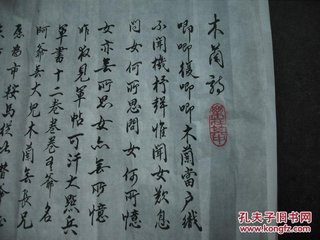 木蘭詩
唧唧復唧唧木蘭當户織
不聞機杼聲惟聞女歎息
問女何所思問女何所憶
女亦無所思女亦無所憶
昨夜見軍帖可汗大點兵
軍書十二卷卷卷有爺名
阿爺無大兒木蘭無長兄
願為市鞍馬從此替爺
孔夫子旧书网